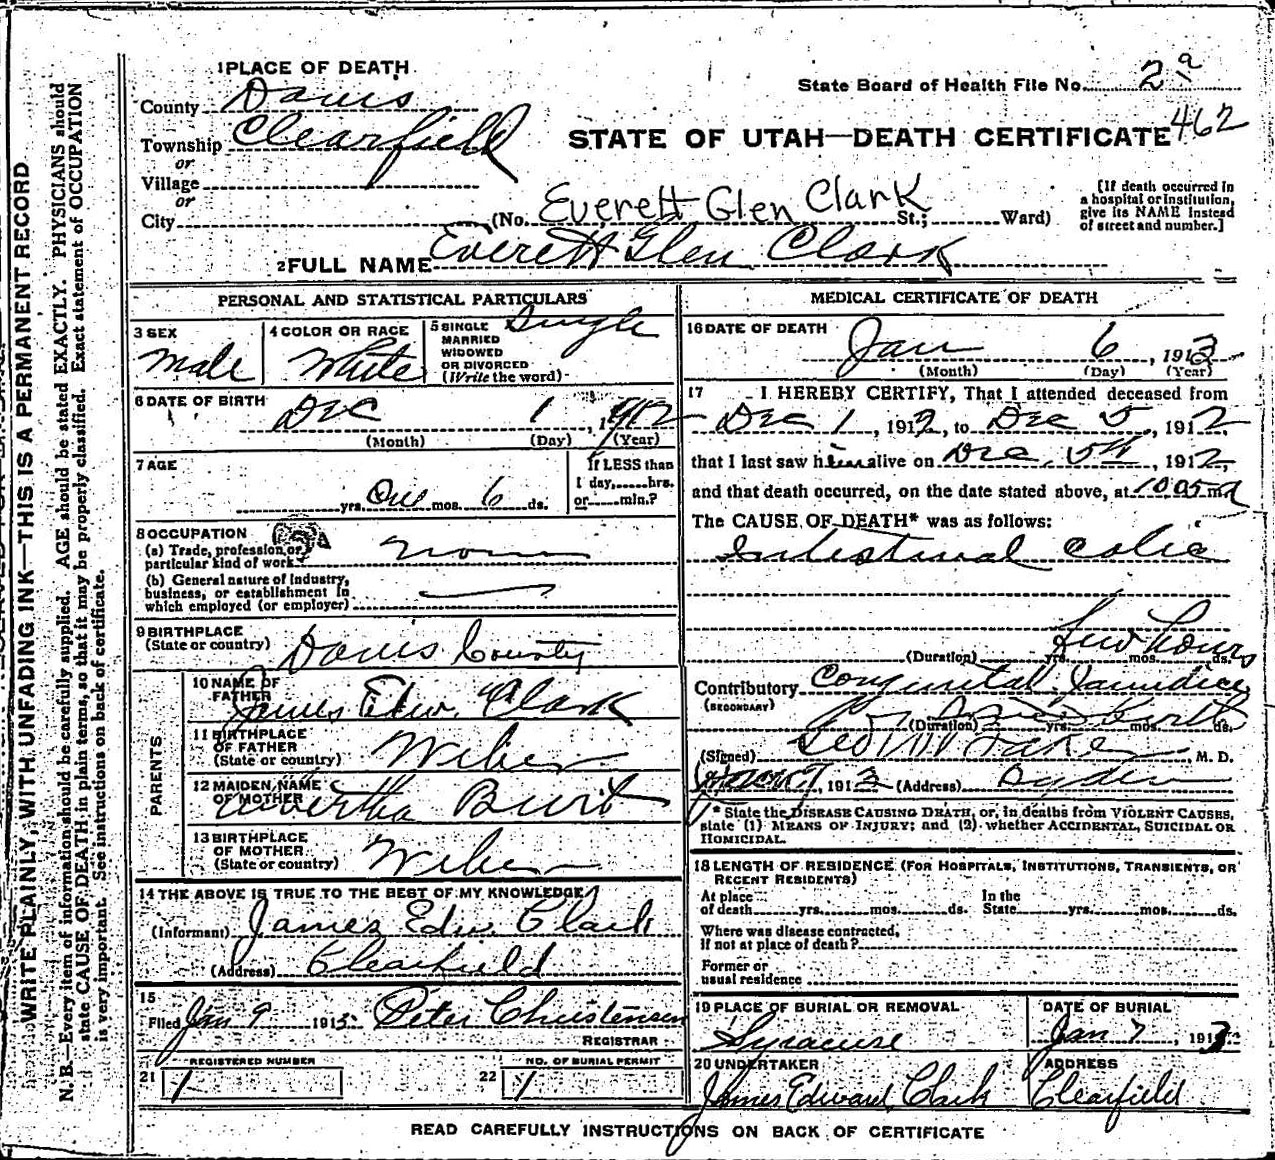 1 PLACE OF DEATH
County Davis
Township Clearfield
or
Village
or
City
State Board of Health File No. 2 a
462
STATE OF UTAH—DEATH CERTIFICATE
(No. Everett Glen Clark St.; Ward)
[If death occurred in
a hospital or institution,
give its NAME instead
of street and number.]
2 FULL NAME Everett Glen Clark
PERSONAL AND STATISTICAL PARTICULARS
3 SEX
Male
4 COLOR OR RACE
White
5 SINGLE
MARRIED
WIDOWED
OR DIVORCED
(Write the word)
Single
6 DATE OF BIRTH
Dec 1, 1912
(Month) (Day) (Year)
7 AGE
yrs. One mos. 6 ds.
If LESS than
1 day, hrs.
or min.?
8 OCCUPATION
(a) Trade, profession, or
particular kind of work None
(b) General nature of industry,
business, or establishment in
which employed (or employer)
9 BIRTHPLACE
(State or country) Davis County
PARENTS
10 NAME OF
FATHER James Edw. Clark
11 BIRTHPLACE
OF FATHER
(State or country) Weber
12 MAIDEN NAME
OF MOTHER Burt
13 BIRTHPLACE
OF MOTHER
(State or country) Weber
14 THE ABOVE IS TRUE TO THE BEST OF MY KNOWLEDGE
(Informant) James Edw. Clark
(Address) Clearfield
15
Filed Jan 9 191 Peter Christensen
REGISTRAR
REGISTERED NUMBER
21 1
NO. OF BURIAL PERMIT
22 1
MEDICAL CERTIFICATE OF DEATH
16 DATE OF DEATH
Jan 6, 1913
(Month) (Day) (Year)
17 I HEREBY CERTIFY, That I attended deceased from
Dec 1, 1912, to Dec 5, 1912,
that I last saw him alive on Dec. 5th, 1912,
and that death occurred, on the date stated above, at 10 05 m
The CAUSE OF DEATH* was as follows:
Intestinal Colic
few hours
(Duration) yrs. mos. ds.
Contributory Congenital Jaundice
(SECONDARY)
(Duration) yrs. mos. ds.
(Signed) Geo W Baker, M. D.
7, 1913 (Address) Ogden
* State the DISEASE CAUSING DEATH, or, in deaths from VIOLENT CAUSES,
state (1) MEANS OF INJURY; and (2) whether ACCIDENTAL, SUICIDAL OR
HOMICIDAL.
18 LENGTH OF RESIDENCE (FOR HOSPITALS, INSTITUTIONS, TRANSIENTS, OR
RECENT RESIDENTS)
At place
of death yrs. mos. ds.
In the
State yrs. mos. ds.
Where was disease contracted,
if not at place of death?
Former or
usual residence
19 PLACE OF BURIAL OR REMOVAL
Syracuse
DATE OF BURIAL
Jan 7, 1913
20 UNDERTAKER
James Edward Clark
ADDRESS
Clearfield
READ CAREFULLY INSTRUCTIONS ON BACK OF CERTIFICATE
WRITE PLAINLY, WITH UNFADING INK—THIS IS A PERMANENT RECORD
N. B.—Every item of information should be carefully supplied. AGE should be stated EXACTLY. PHYSICIANS should
state CAUSE OF DEATH in plain terms, so that it may be properly classified. Exact statement of OCCUPATION
is very important. See instructions on back of certificate.